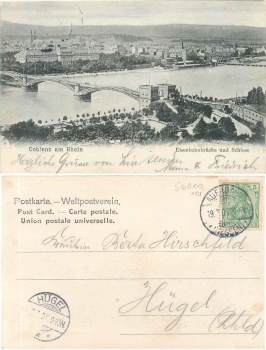 Coblenz am Rhein
Eisenbahnbrücke und Schloss
Herzliche Grüsse von
Friedrich
Postkarte. — Weltpostverein.
Post Card. — Carte postale.
Union postale universelle.
Fräulein Berta Hirschfeld
Hügel
(Rhld)
HÜGEL